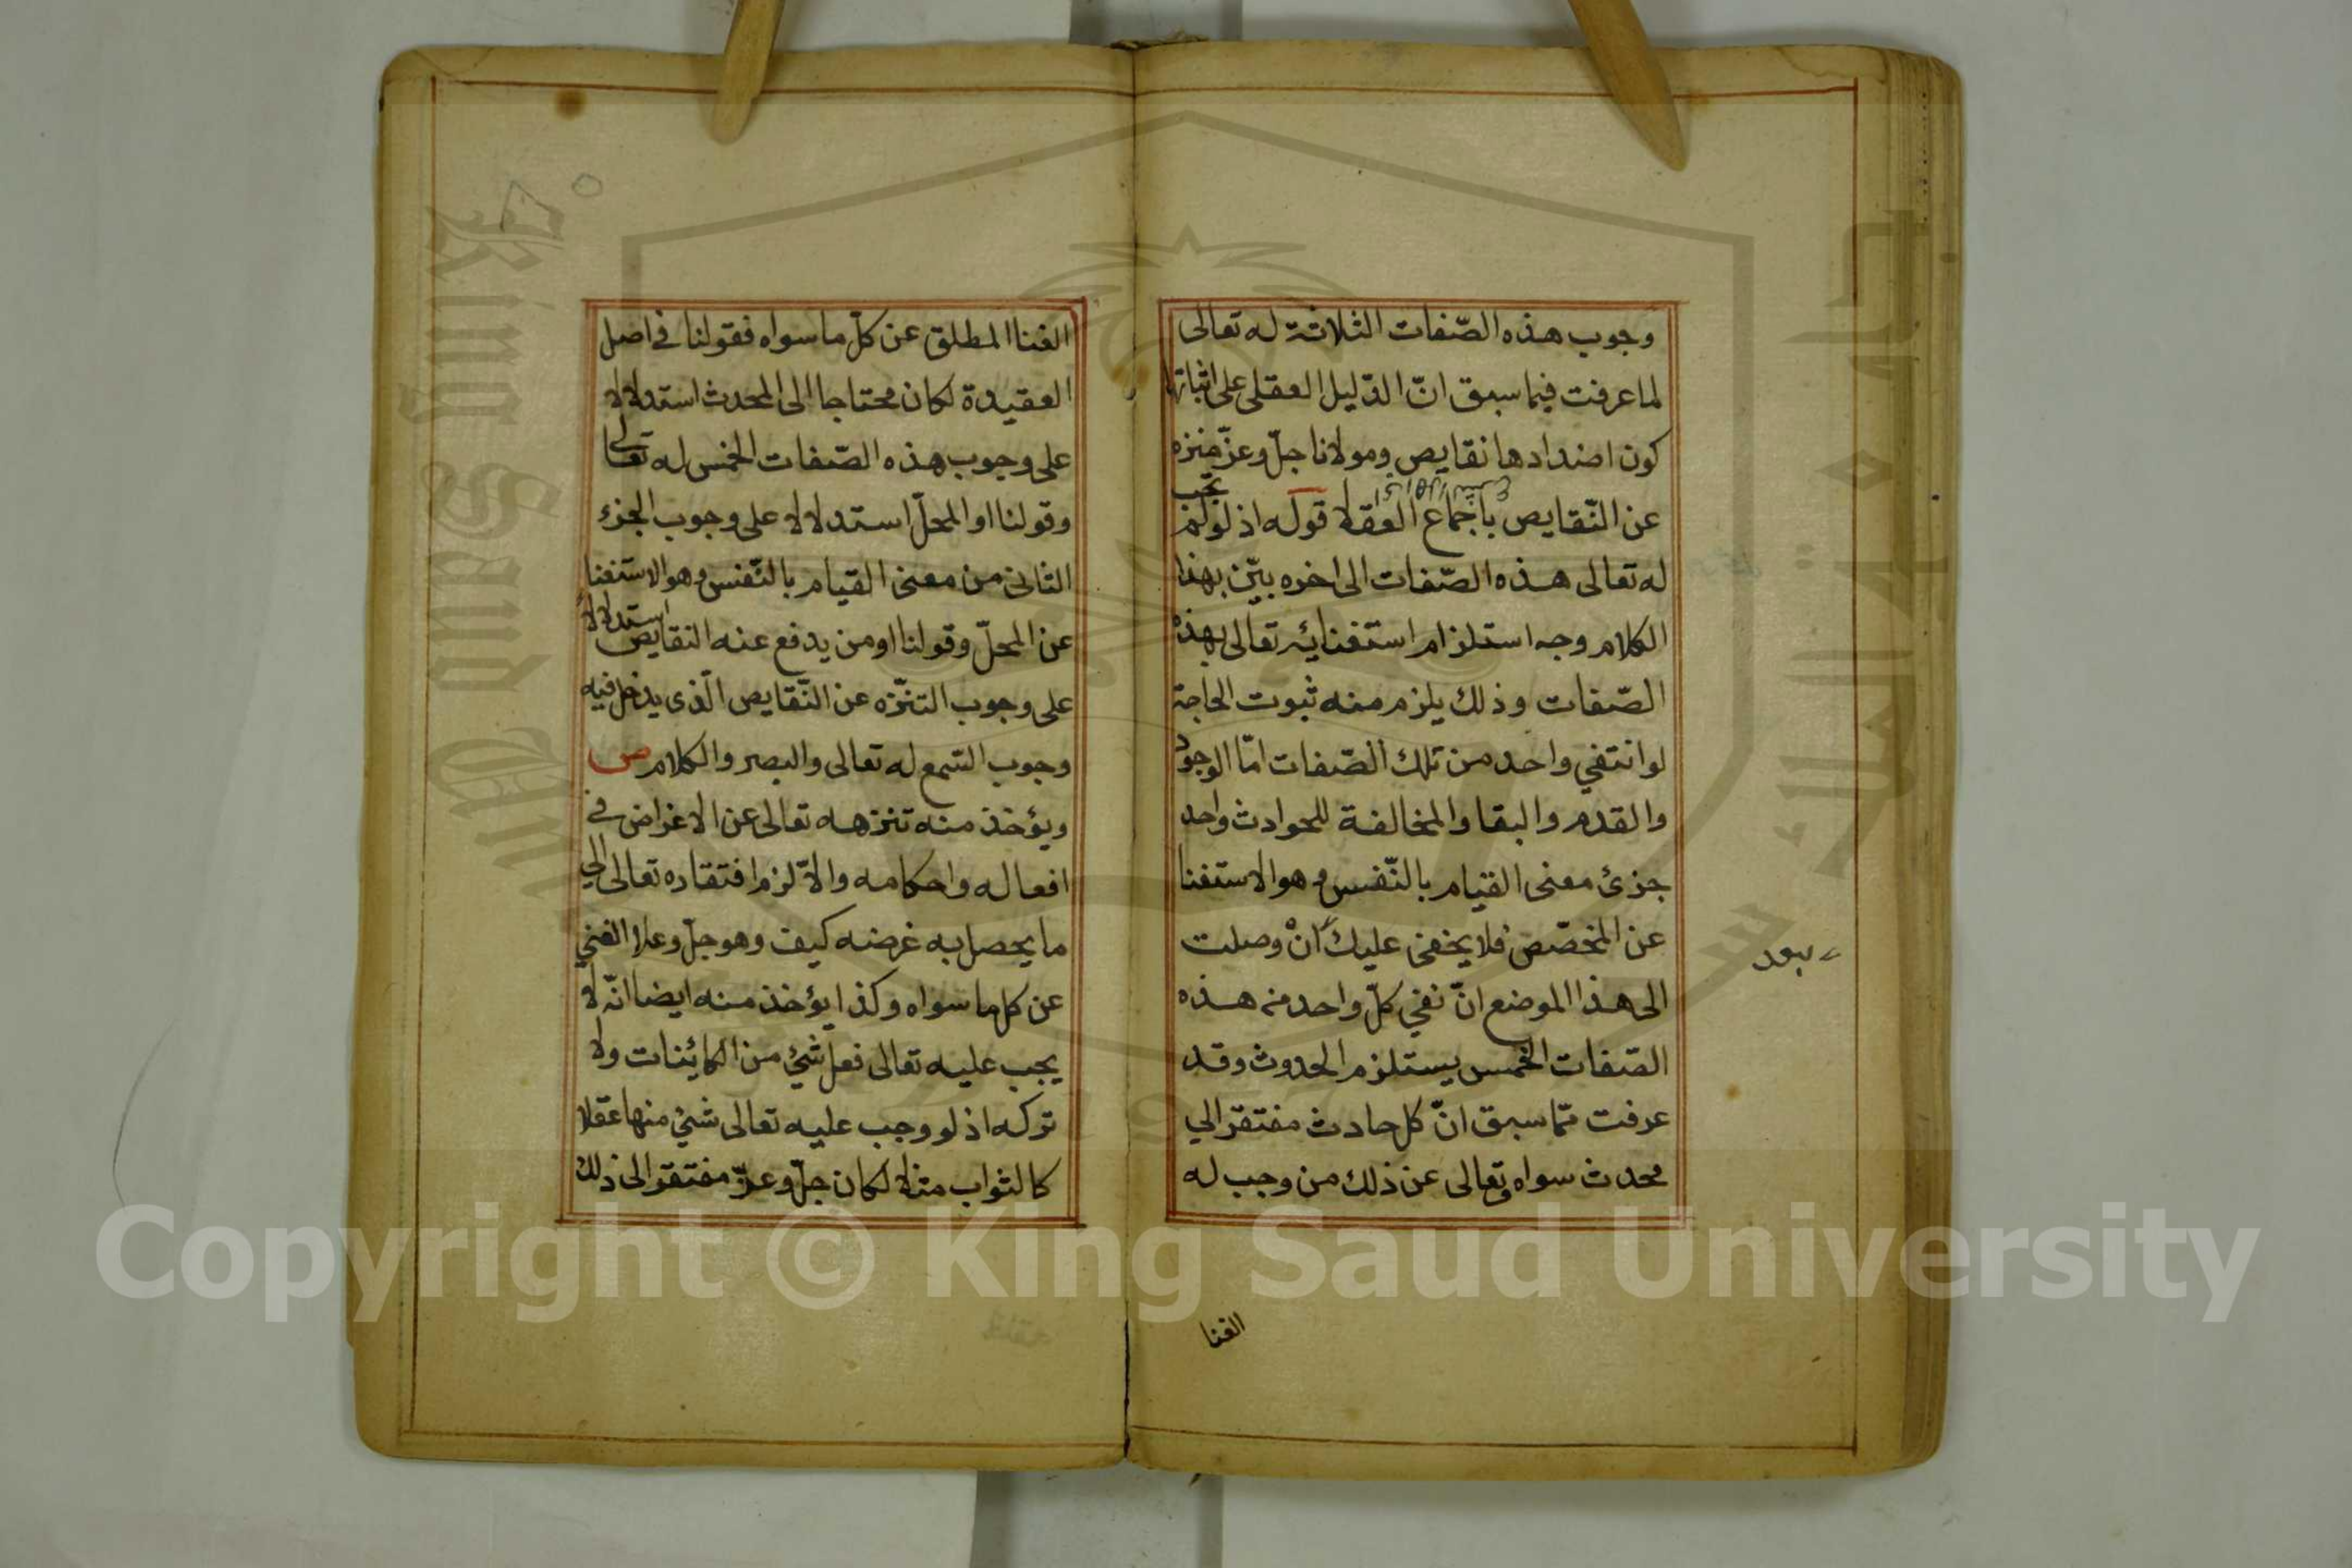 وجوب هذه الصّفات الثلاثة له تعالى
لما عرفت فيما سبق انّ الدّليل العقلى على اثباتها
كون اضدادها نقايص ومولانا جلّ وعزّ منزه
عن النّقايص باجماع العقلا قوله اذ لو لم يجب
له تعالى هذه الصّفات الى اخره بيّن بهذا
الكلام وجه استلزام استغنائه تعالى بهذه
الصّفات وذلك يلزم منه ثبوت الحاجة
لو انتفي واحد من تلك الصّفات امّا الوجود
والقدم والبقا والمخالفة للحوادث واحد
جزئ معنى القيام بالنّفس وهو الاستغنا
عن المخصّص فلا يخفى عليك انْ وصلت
الى هذا الموضع انّ نفي كلّ واحد من هذه
الصّفات الخمس يستلزم الحدوث وقد
عرفت ممّا سبق انّ كل حادث مفتقر الي
محدث سواه وتعالى عن ذلك من وجب له
الغنا
الغنا المطلق عن كلّ ما سواه فقولنا في اصل
العقيدة لكان محتاجا الى المحدث استدلالا
على وجوب هذه الصّفات الخمس له تعالى
وقولنا او المحلّ استدلالا على وجوب الجزء
الثانى من معنى القيام بالنّفس وهو الاستغنا
عن المحلّ وقولنا او من يدفع عنه النقايص استدلالا
على وجوب التنزّه عن النّقايص الّذى يدخل فيه
وجوب السّمع له تعالى والبصر والكلام ص
ويؤخذ منه تنزهه تعالى عن الاغراض في
افعاله واحكامه والاّ لزم افتقاره تعالى الي
ما يحصل به غرضه كيف وهو جلّ وعلا الغني
عن كل ما سواه وكذا يؤخذ منه ايضا انّه لا
يجب عليه تعالى فعل شئ من الكائنات ولا
تركه اذ لو وجب عليه تعالى شئ منها عقلا
كالثواب مثلا لكان جلّ وعزّ مفتقرا الى ذلك
Copyright © King Saud University